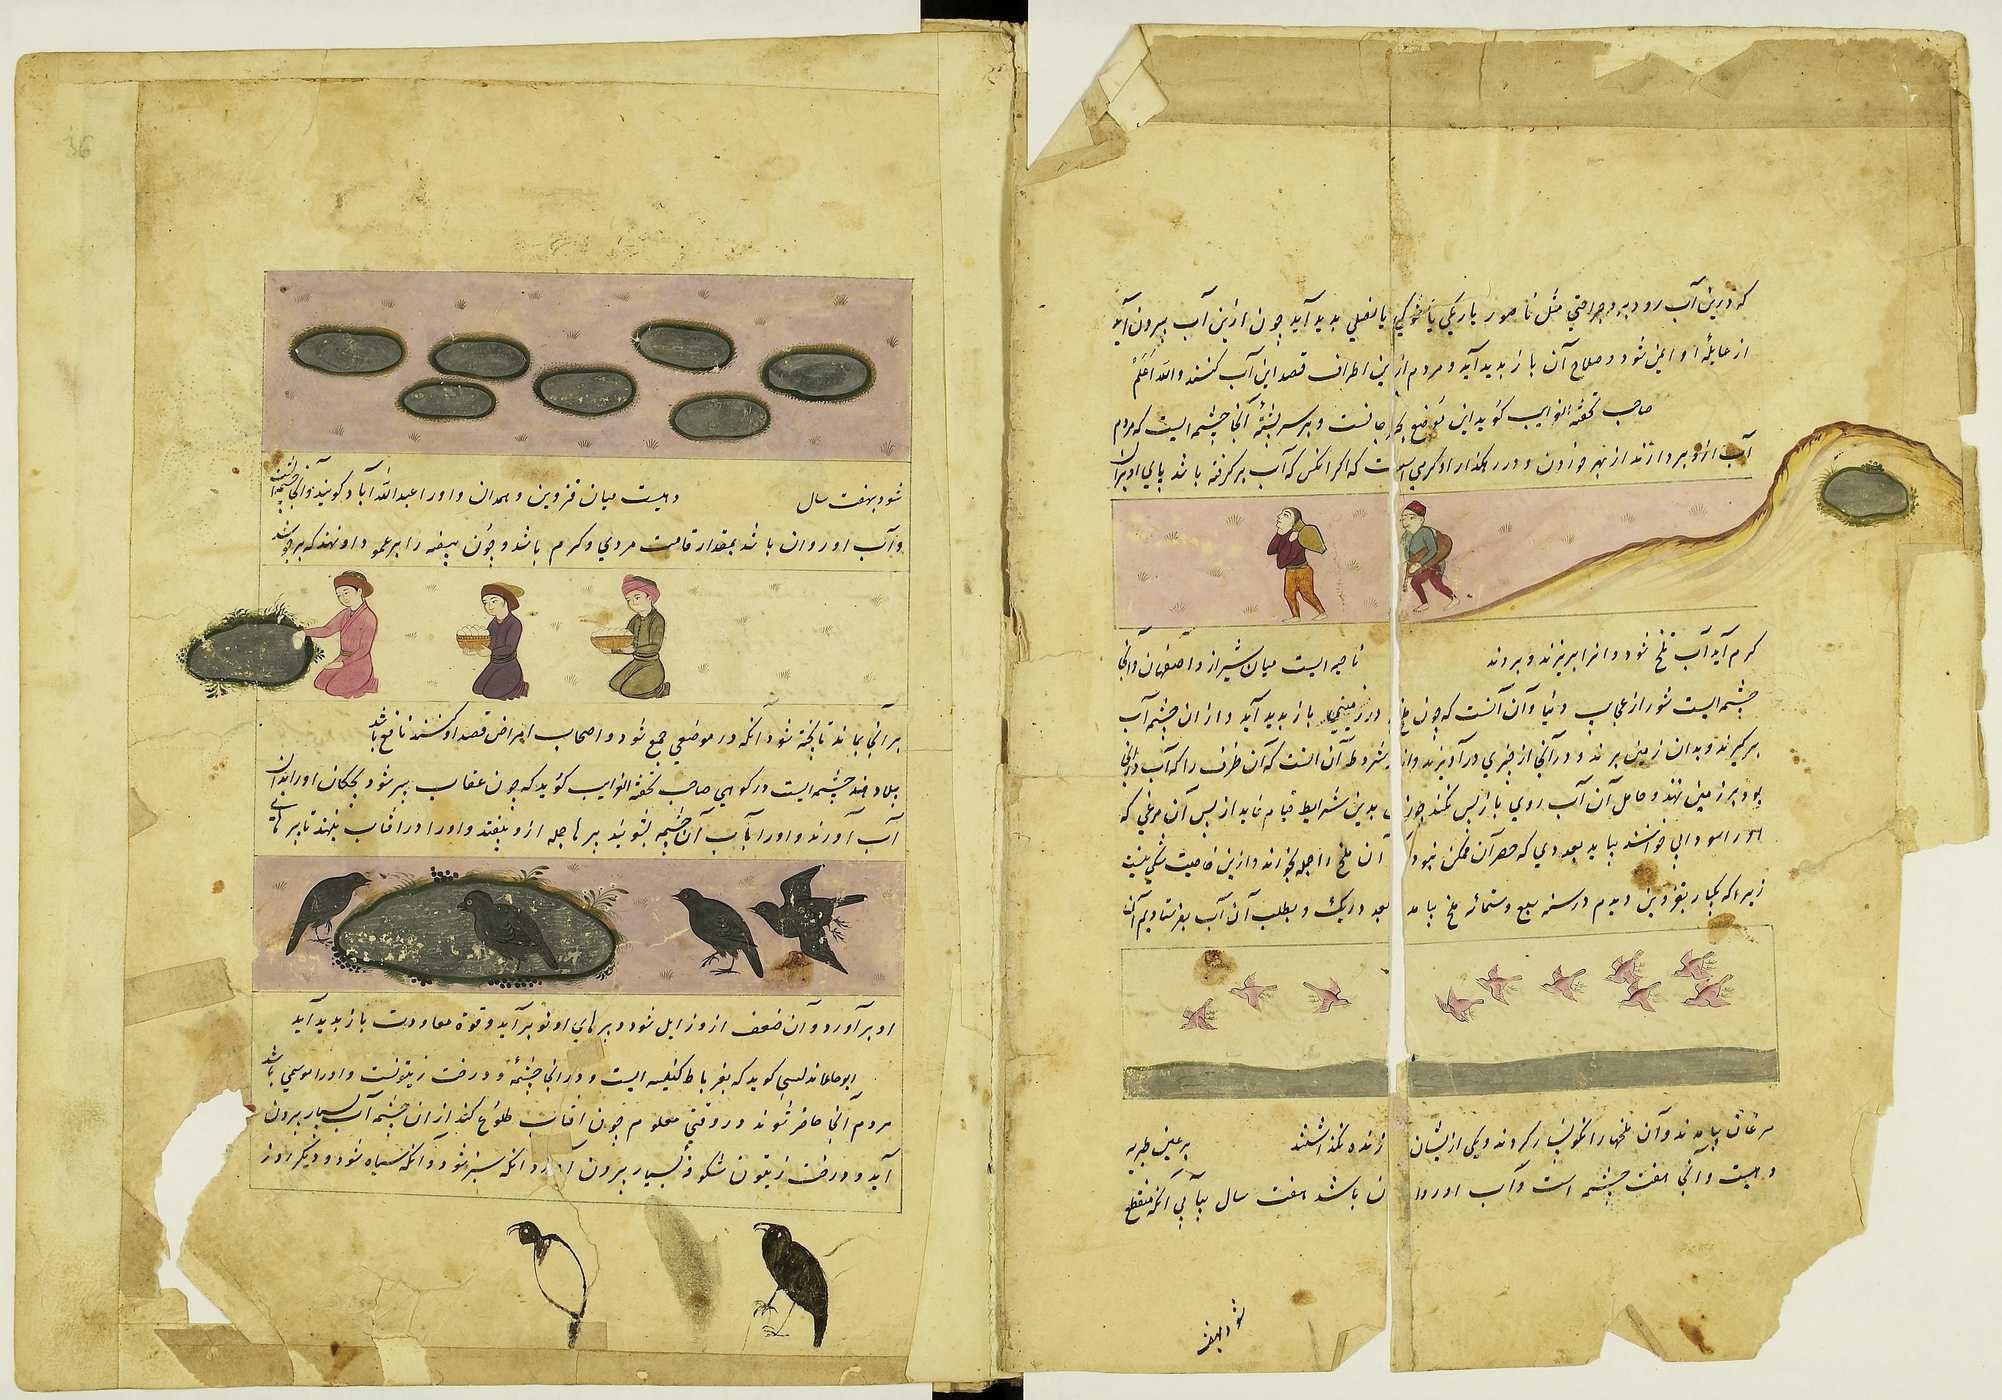 که درین آب رود بهر جراحتی مثل ناصور یا ریکی یا نفعلی بدید آید چون ازین آب بیرون آید
از عایلهٔ او ایمن شود و صلاح آن باز بدید آید و مردم ازین اطراف قصد این آب کنند والله اعلم
صاحب تحفة الغرایب کوید این موضع بجرجانست و بر سر پشتهٔ آنجا چشمه ایست که مردم
آب ازو بردارند از بهر خوردن و در رهکذار او کرمی است که اگر آنکس که آب برکرفته باشد پای او بران
کرم آید آب تلخ شود و انرا بریزند و بروند
ناحیه ایست میان شیراز و اصفهان و آنجا
چشمه ایست مشهور از عجایب دنیا و آن آنست که چون ملخ در زمینی باز بدید آید و از ان چشمه آب
برکیرند و بدان زمین برند و در آنجا از چیزی در آویزند و از شروطه آن انست که آن ظرف را که آب در آنجا
بود بر زمین ننهند و حامل آن آب روی باز پس نکند چون بدین شرایط قیام نماید از پس آن مرغی که
او را سودانی خوانند بیاید بعددی که حصر آن ممکن نبود آن ملخ را جمله بخورند و ازین خاصیت شکی نیست
زیرا که یکبار بقزوین دیدم در سنه سبع و ستمائه ملخ بیامد بعد دریک و بطلب آن آب بفرستادیم آن
مرغان بیامدند و آن ملخها را نکونسار کردند و یکی ازیشان زنده نکذاشتند
بر عین طبریه
دهیست و آنجا هفت چشمه است و آب او روان باشد هفت سال بیاپی آنکه منقطع
شود بهفت
شود بهفت سال
دهیست میان قزوین و همدان و اورا عبدالله آباد کویند و آنجا چشمه ایست
و آب او روان باشد بمقدار قامت مردی و کرم باشد و چون بیضه را بر عمود او نهند که بر جوشد
بر آنجا بماند تا پخته شود آنکه در موضعی جمع شود و اصحاب امراض قصد او کنند نافع باشد
ببلاد هند چشمه ایست در کوهی صاحب تحفة الغرایب کوید که چون عقاب پیر شود بچکان اورا بدان
آب آورند و اورا بآب آن چشمه بشویند پرها جمله ازو بیفتد و اورا در آفتاب بنهند تا پرهای
او برآورد و آن ضعف ازو زایل شود و پرهای او نو برآید و قوة معاودت باز بدید آید
ابو حامد اندلسی کوید که بغرباط کنیسه ایست و در آنجا چشمه و درخت زیتونست و اورا موسمی باشد
مردم آنجا حاضر شوند در وقتی معلوم چون آفتاب طلوع کند از ان چشمه آب بسیار بیرون
آید و درخت زیتون شکوفه بسیار بیرون آورد آنکه سبز شود و آنکه سیاه شود و دیکر روز
36